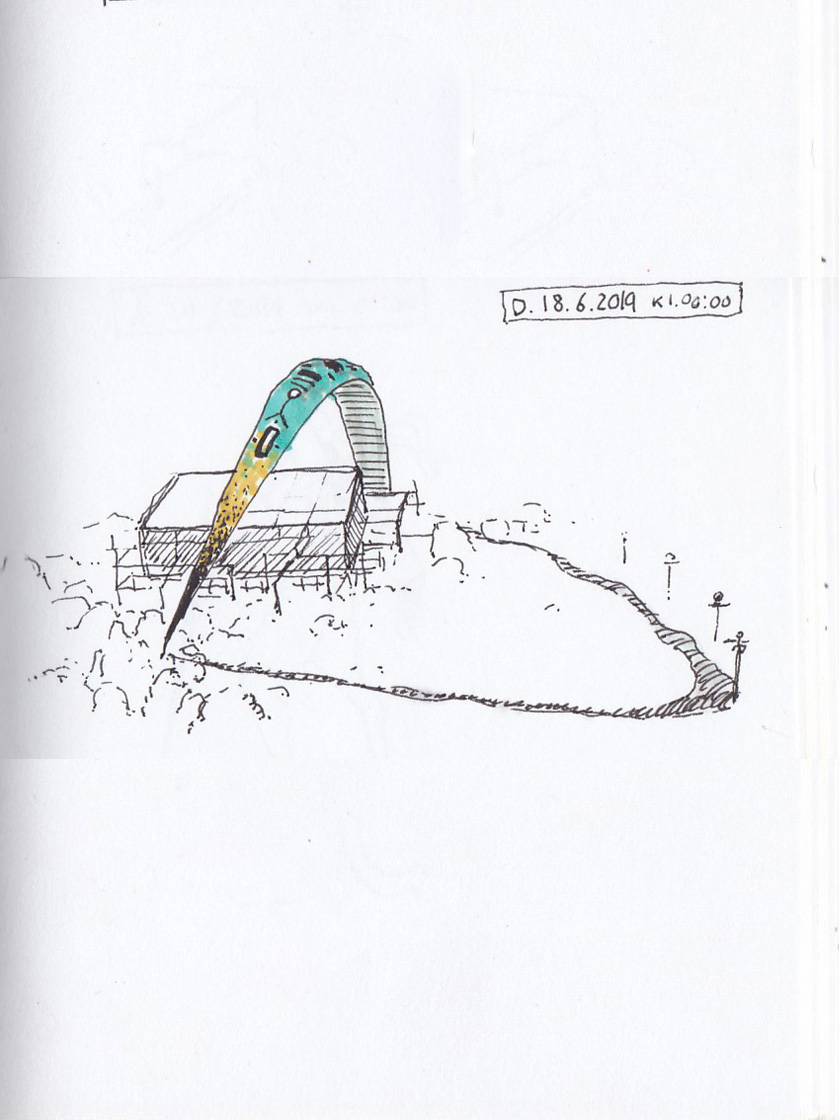 D. 18.6.2019 Kl.00:00